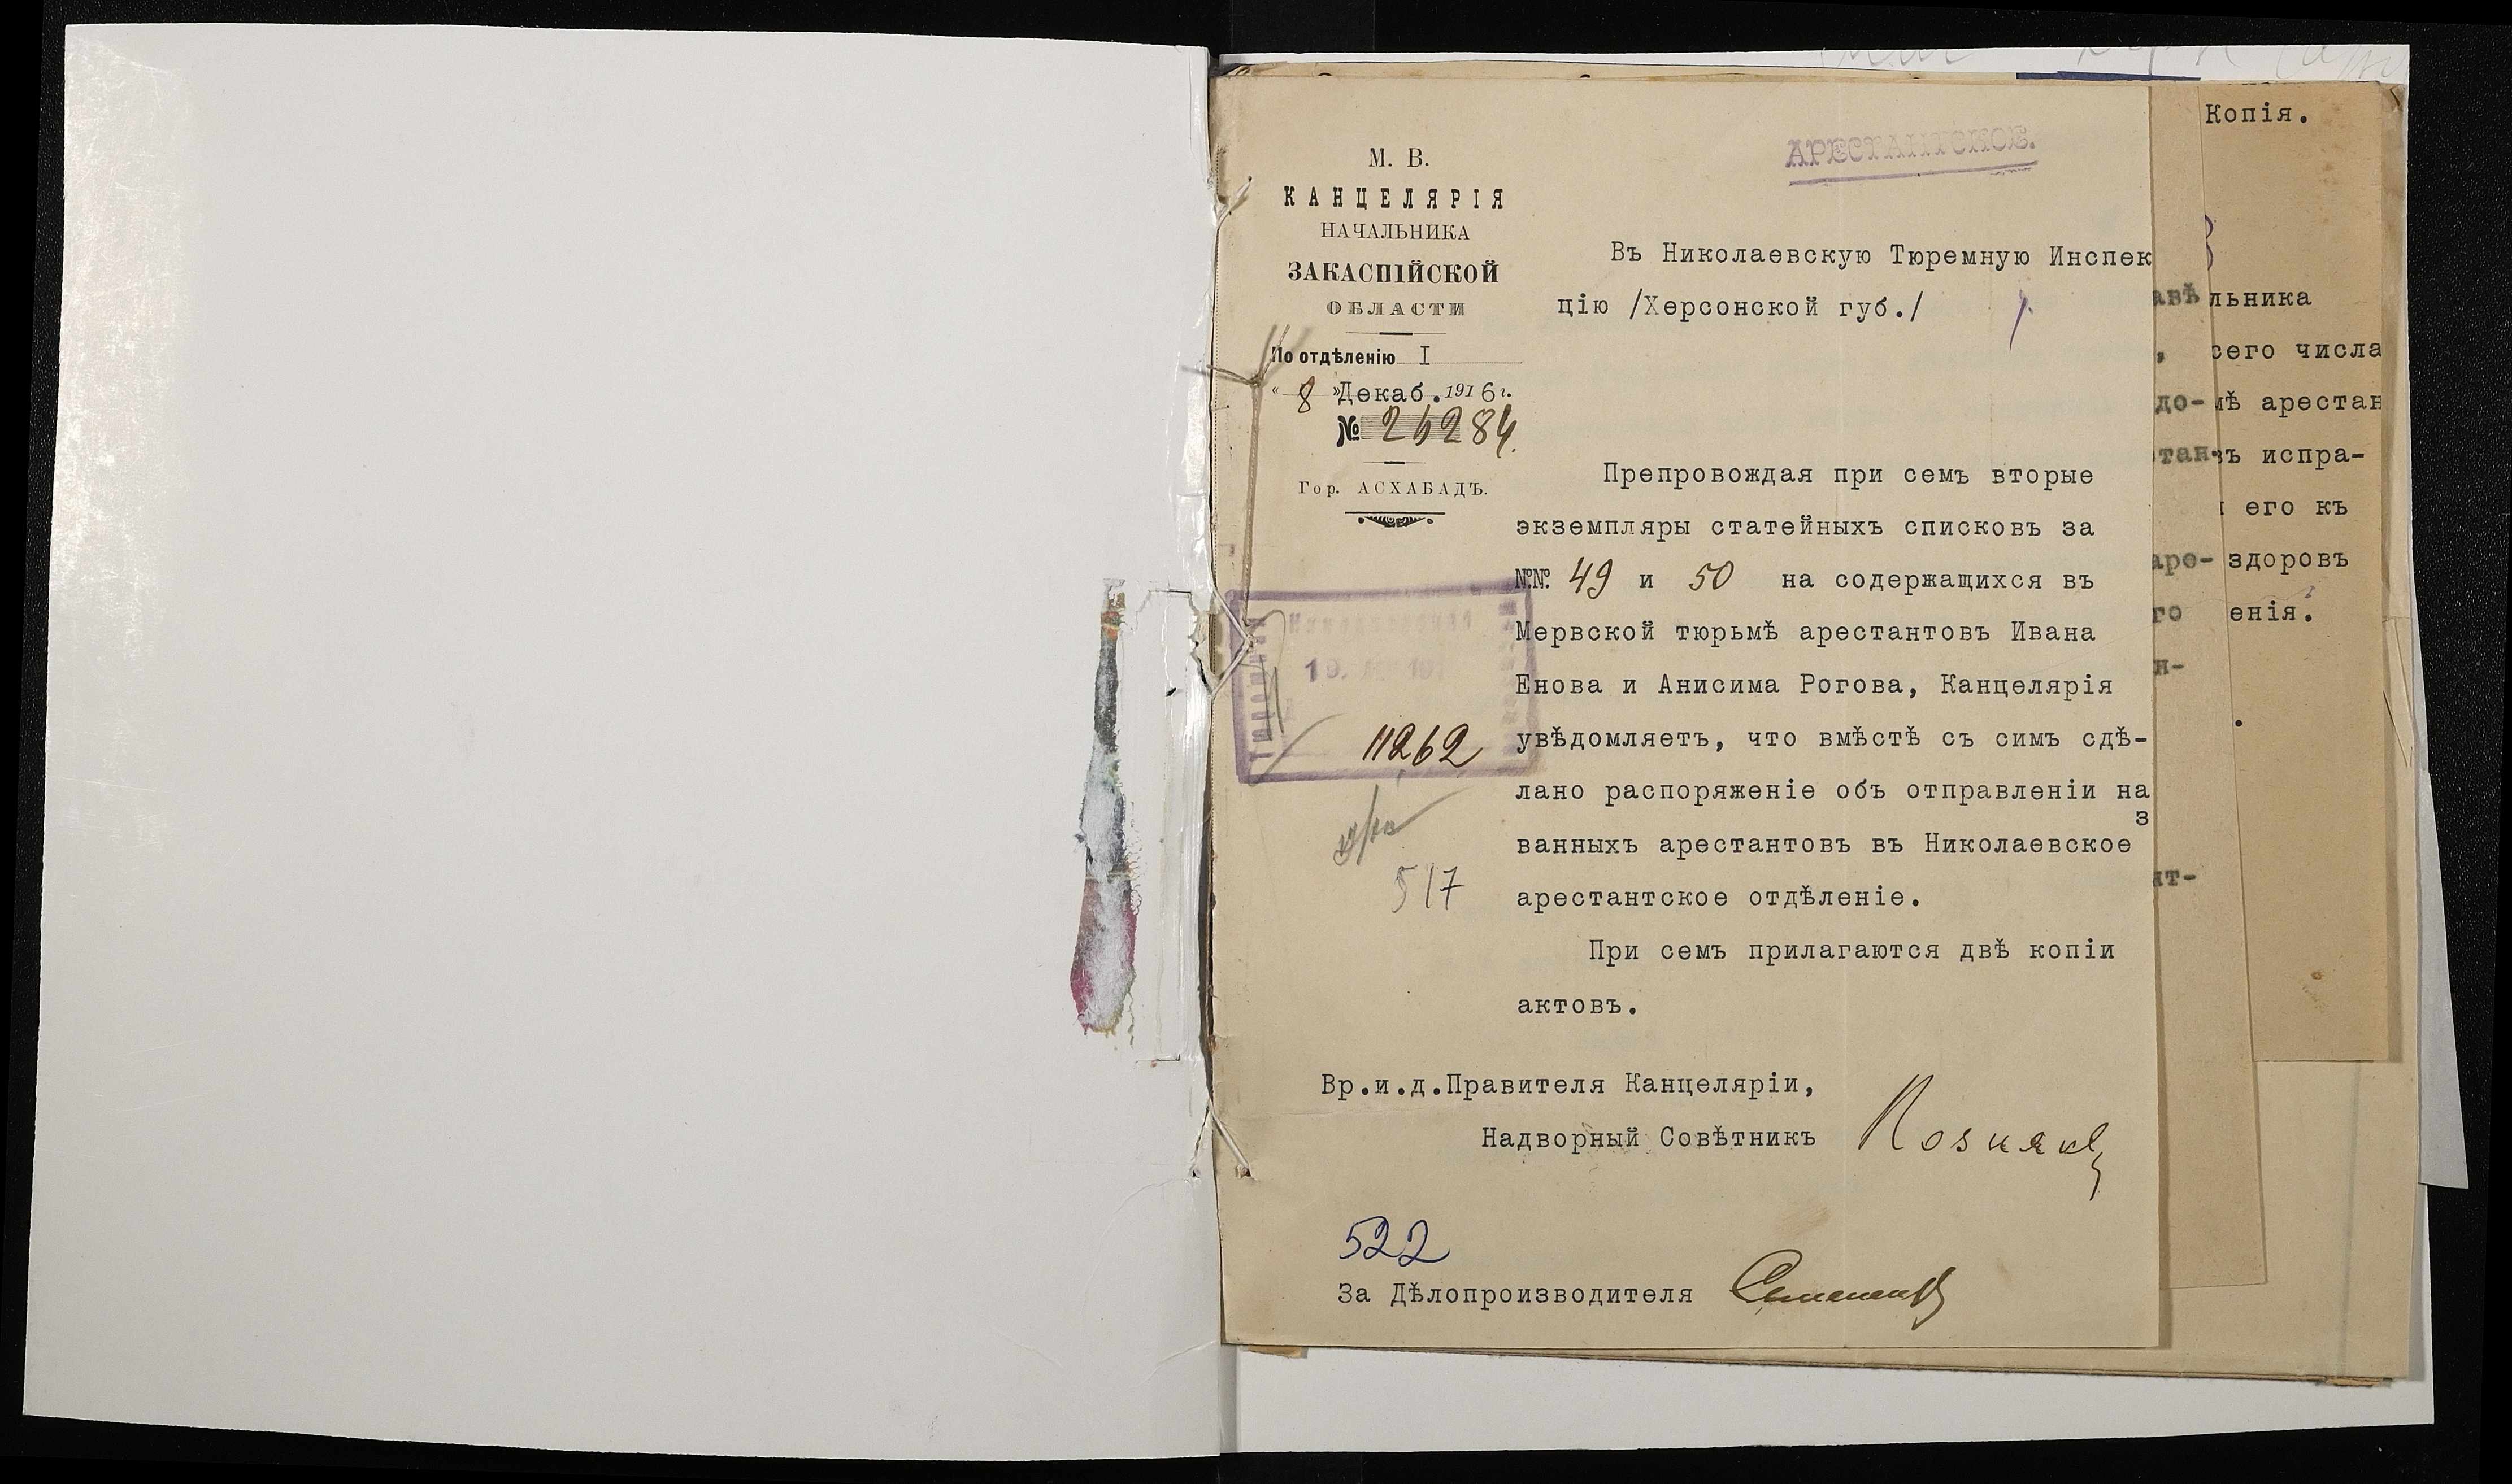 М. В.
КАНЦЕЛЯРІЯ
НАЧАЛЬНИКА
ЗАКАСПІЙСКОЙ
ОБЛАСТИ
По отдѣленію I
« 8 » Декаб. 1916 г.
№ 26284.
Гор. АСХАБАДЪ.
АРЕСТАНТСКОЕ.
Въ Николаевскую Тюремную Инспек
цію /Херсонской губ./
Препровождая при семъ вторые
экземпляры статейныхъ списковъ за
№№ 49 и 50 на содержащихся въ
Мервской тюрьмѣ арестантовъ Ивана
Енова и Анисима Рогова, Канцелярія
увѣдомляетъ, что вмѣстѣ съ симъ сдѣ-
лано распоряженіе объ отправленіи на
з
ванныхъ арестантовъ въ Николаевское
арестантское отдѣленіе.
При семъ прилагаются двѣ копіи
актовъ.
Вр.и.д.Правителя Канцеляріи,
Надворный Совѣтникъ Познякъ
522
За Дѣлопроизводителя
Николаевская
Тюремная
19.
11262
517
Копія.
льника
сего числа
мѣ арестан
въ испра-
его къ
здоровъ
енія.
авѣ
до-
стан-
аре-
го
н-
нт-